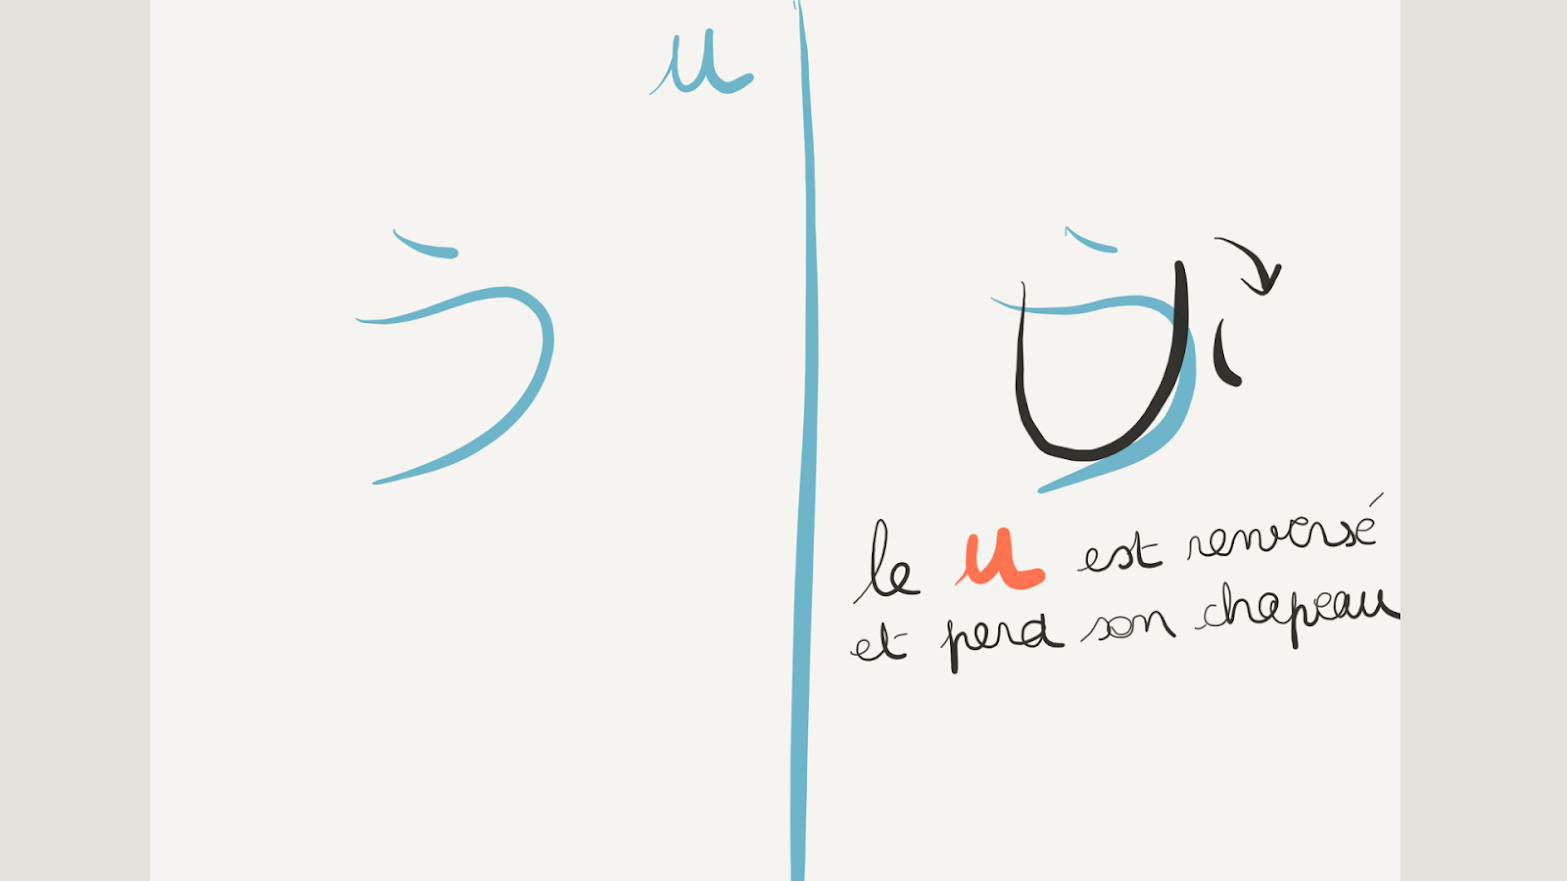 u
う
う
le u est renversé
et perd son chapeau